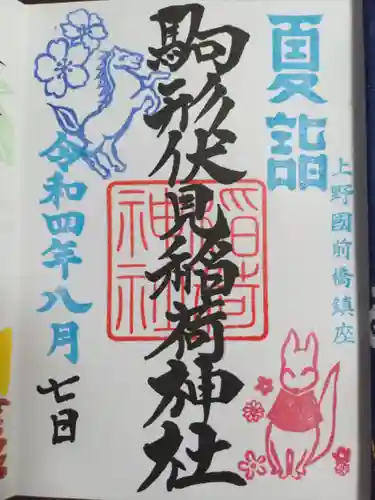 夏詣
上野國前橋鎮座
駒形伏見稲荷神社
稲荷
神社
令和四年八月
七日